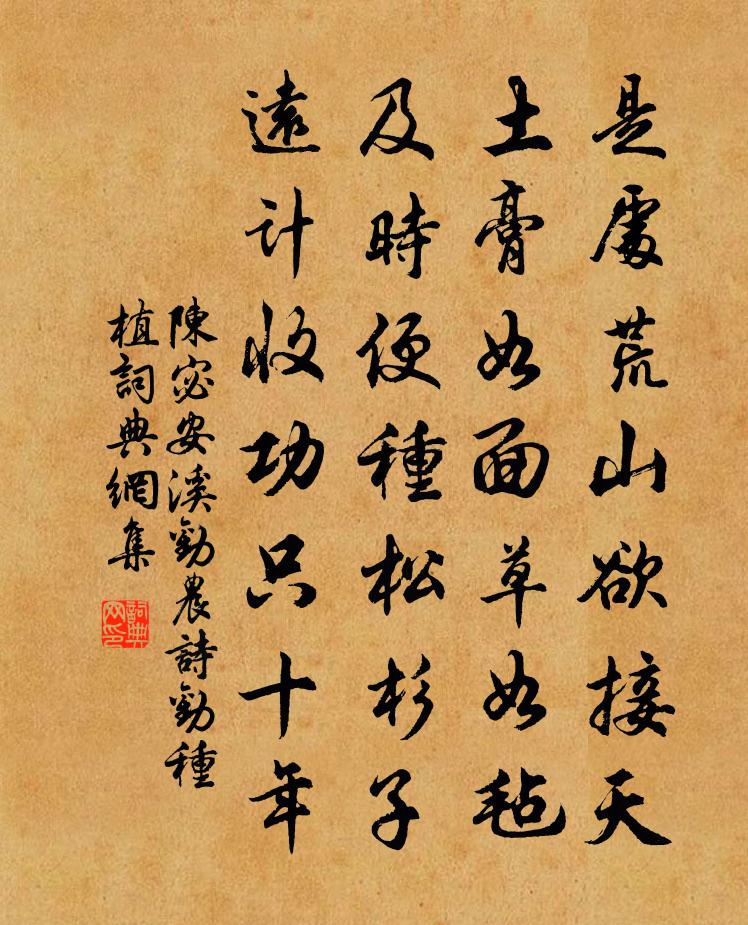 是處荒山欲接天
土膏如面草如毡
及時便種松杉子
遠计收功只十年
陳宓安溪勸農詩勸種
植詞典網集
詞典网印